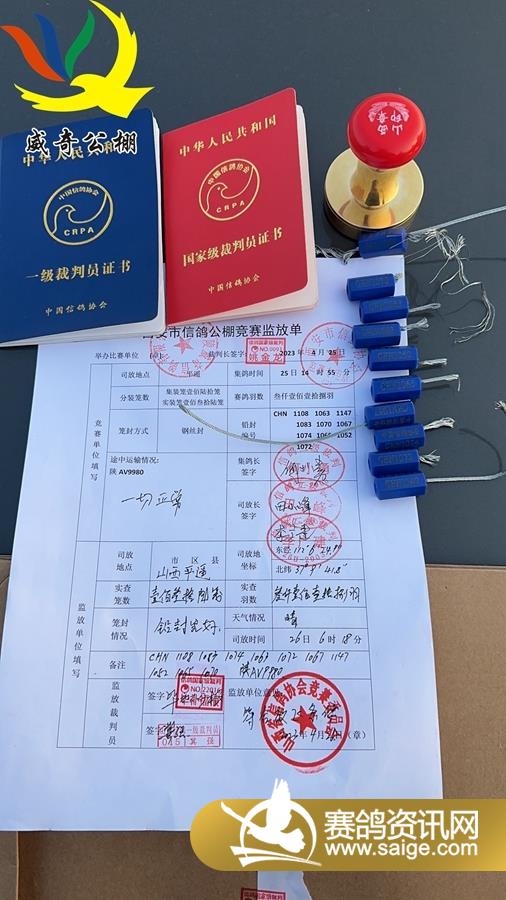 威奇公棚
中华人民共和国
中国信鸽协会
CRPA
一级裁判员证书
中国信鸽协会
中华人民共和国
中国信鸽协会
CRPA
国家级裁判员证书
中国信鸽协会
山西
印章
安市信鸽公棚竞赛监放单
举办比赛单位 (章)
裁判长签字
姚金龙
2023 年 4 月 25 日
司放地点 平遥 集鸽时间 25 日 14 时 55 分
分装笼数 集装笼壹佰陆拾笼
实装笼壹佰叁拾陆笼
赛鸽羽数 叁仟壹佰壹拾捌羽
笼封方式 钢丝封 铅封编号
CHN 1108 1063 1147
1083 1070 1067
1074 1065 1052
1072
竞赛单位填写
途中运输情况:
陕 AV9980
一切正常
集鸽长
签字
司放长
签字
司放
地点
市 区 县
山西平遥
司放地
坐标
东经
北纬
实查
笼数
实查
羽数
笼封
情况
铅封完好
天气情况 晴
司放时间 26 日 6 时 18 分
监放单位填写
备注 CHN 1108 1083 1074 1063 1072 1067 1147
1052 1065 1070 陕AV9980
监放裁判员
签字
监放单位意见
签字
一级裁判员
015 冀强
山西省信鸽协会竞赛委员会
(章)
赛鸽资讯网
www.saige.com